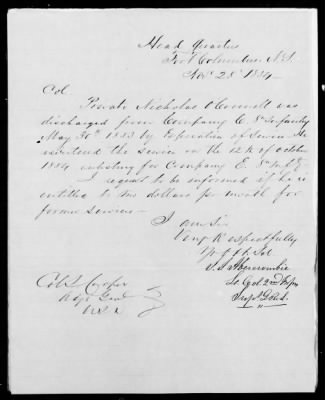 Head Quarters
Fort Columbus N.Y.
Nov. 28" 1854
Col
Private Nicholas O'Connell was
discharged from Company E. 8" Infantry
May 30th 1853 by expiration of service. He
reentered the service on the 12th of October
1854 enlisting for Company E. 8" Inf.
I request to be informed if he is
entitled to two dollars per month for
former services—
I am Sir
Very Respectfully
Yr Obt Svt
J. J. Abercrombie
Lt. Col. 2nd Infy
Supt
Col. S. Cooper
Adjt Genl
U.S.A